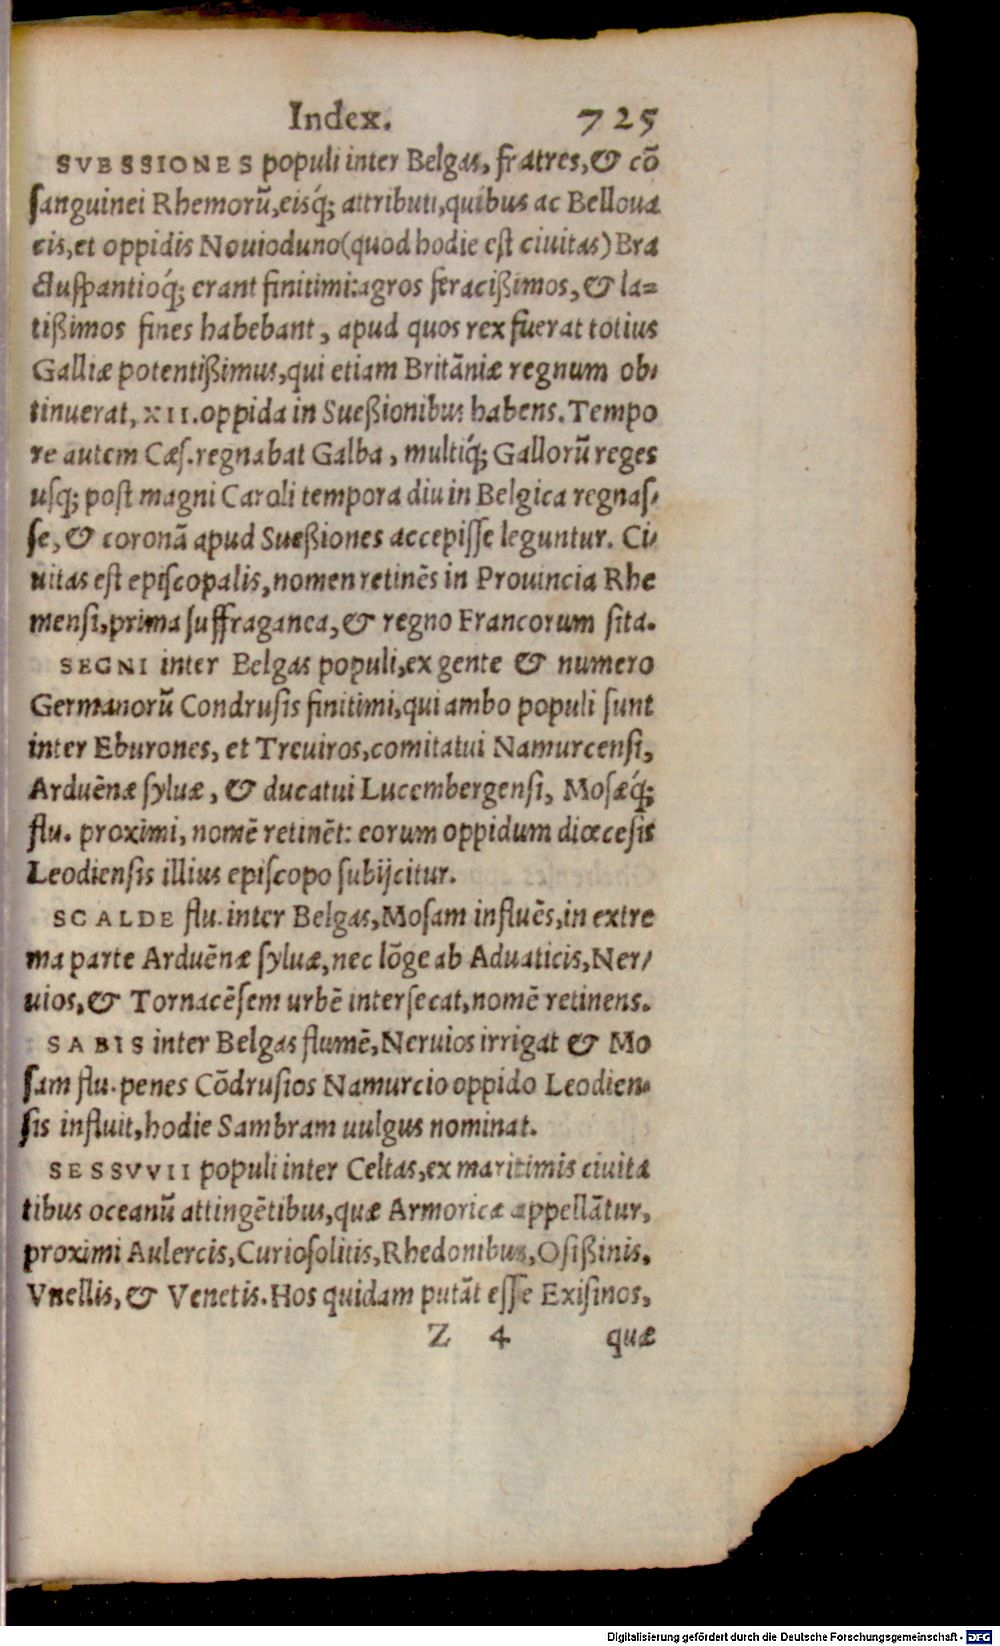 Index. 725
SVESSIONES populi inter Belgas, fratres, & cõ
sanguinei Rhemorũ, eisq́; attributi, quibus ac Belloua
cis, et oppidis Nouioduno (quod hodie est ciuitas) Bra
ctuspantioq́; erant finitimi: agros feracißimos, & la=
tißimos fines habebant, apud quos rex fuerat totius
Galliæ potentißimus, qui etiam Britãniæ regnum ob-
tinuerat, XII. oppida in Sueßionibus habens. Tempo
re autem Cæs. regnabat Galba, multiq́; Gallorũ reges
usq; post magni Caroli tempora diu in Belgica regnas-
se, & coronã apud Sueßiones accepisse leguntur. Ci-
uitas est episcopalis, nomen retinẽs in Prouincia Rhe
mensi, prima suffraganea, & regno Francorum sita.
SEGNI inter Belgas populi, ex gente & numero
Germanorũ Condrusis finitimi, qui ambo populi sunt
inter Eburones, et Treuiros, comitatui Namurcensi,
Arduẽnæ syluæ, & ducatui Lucembergensi, Mosæq́;
flu. proximi, nomẽ retinẽt: eorum oppidum diœcesis
Leodiensis illius episcopo subijcitur.
SCALDE flu. inter Belgas, Mosam influẽs, in extre
ma parte Arduẽnæ syluæ, nec lõge ab Aduaticis, Ner-
uios, & Tornacẽsem urbẽ intersecat, nomẽ retinens.
SABIS inter Belgas flumẽ, Neruios irrigat & Mo
sam flu. penes Cõdrusios Namurcio oppido Leodien-
sis influit, hodie Sambram uulgus nominat.
SESSVVII populi inter Celtas, ex maritimis ciuita
tibus oceanũ attingẽtibus, quæ Armoricæ appellãtur,
proximi Aulercis, Curiosolitis, Rhedonibus, Osißinis,
Vnellis, & Venetis. Hos quidam putãt esse Exisinos,
Z 4 quæ
Digitalisierung gefördert durch die Deutsche Forschungsgemeinschaft - DFG